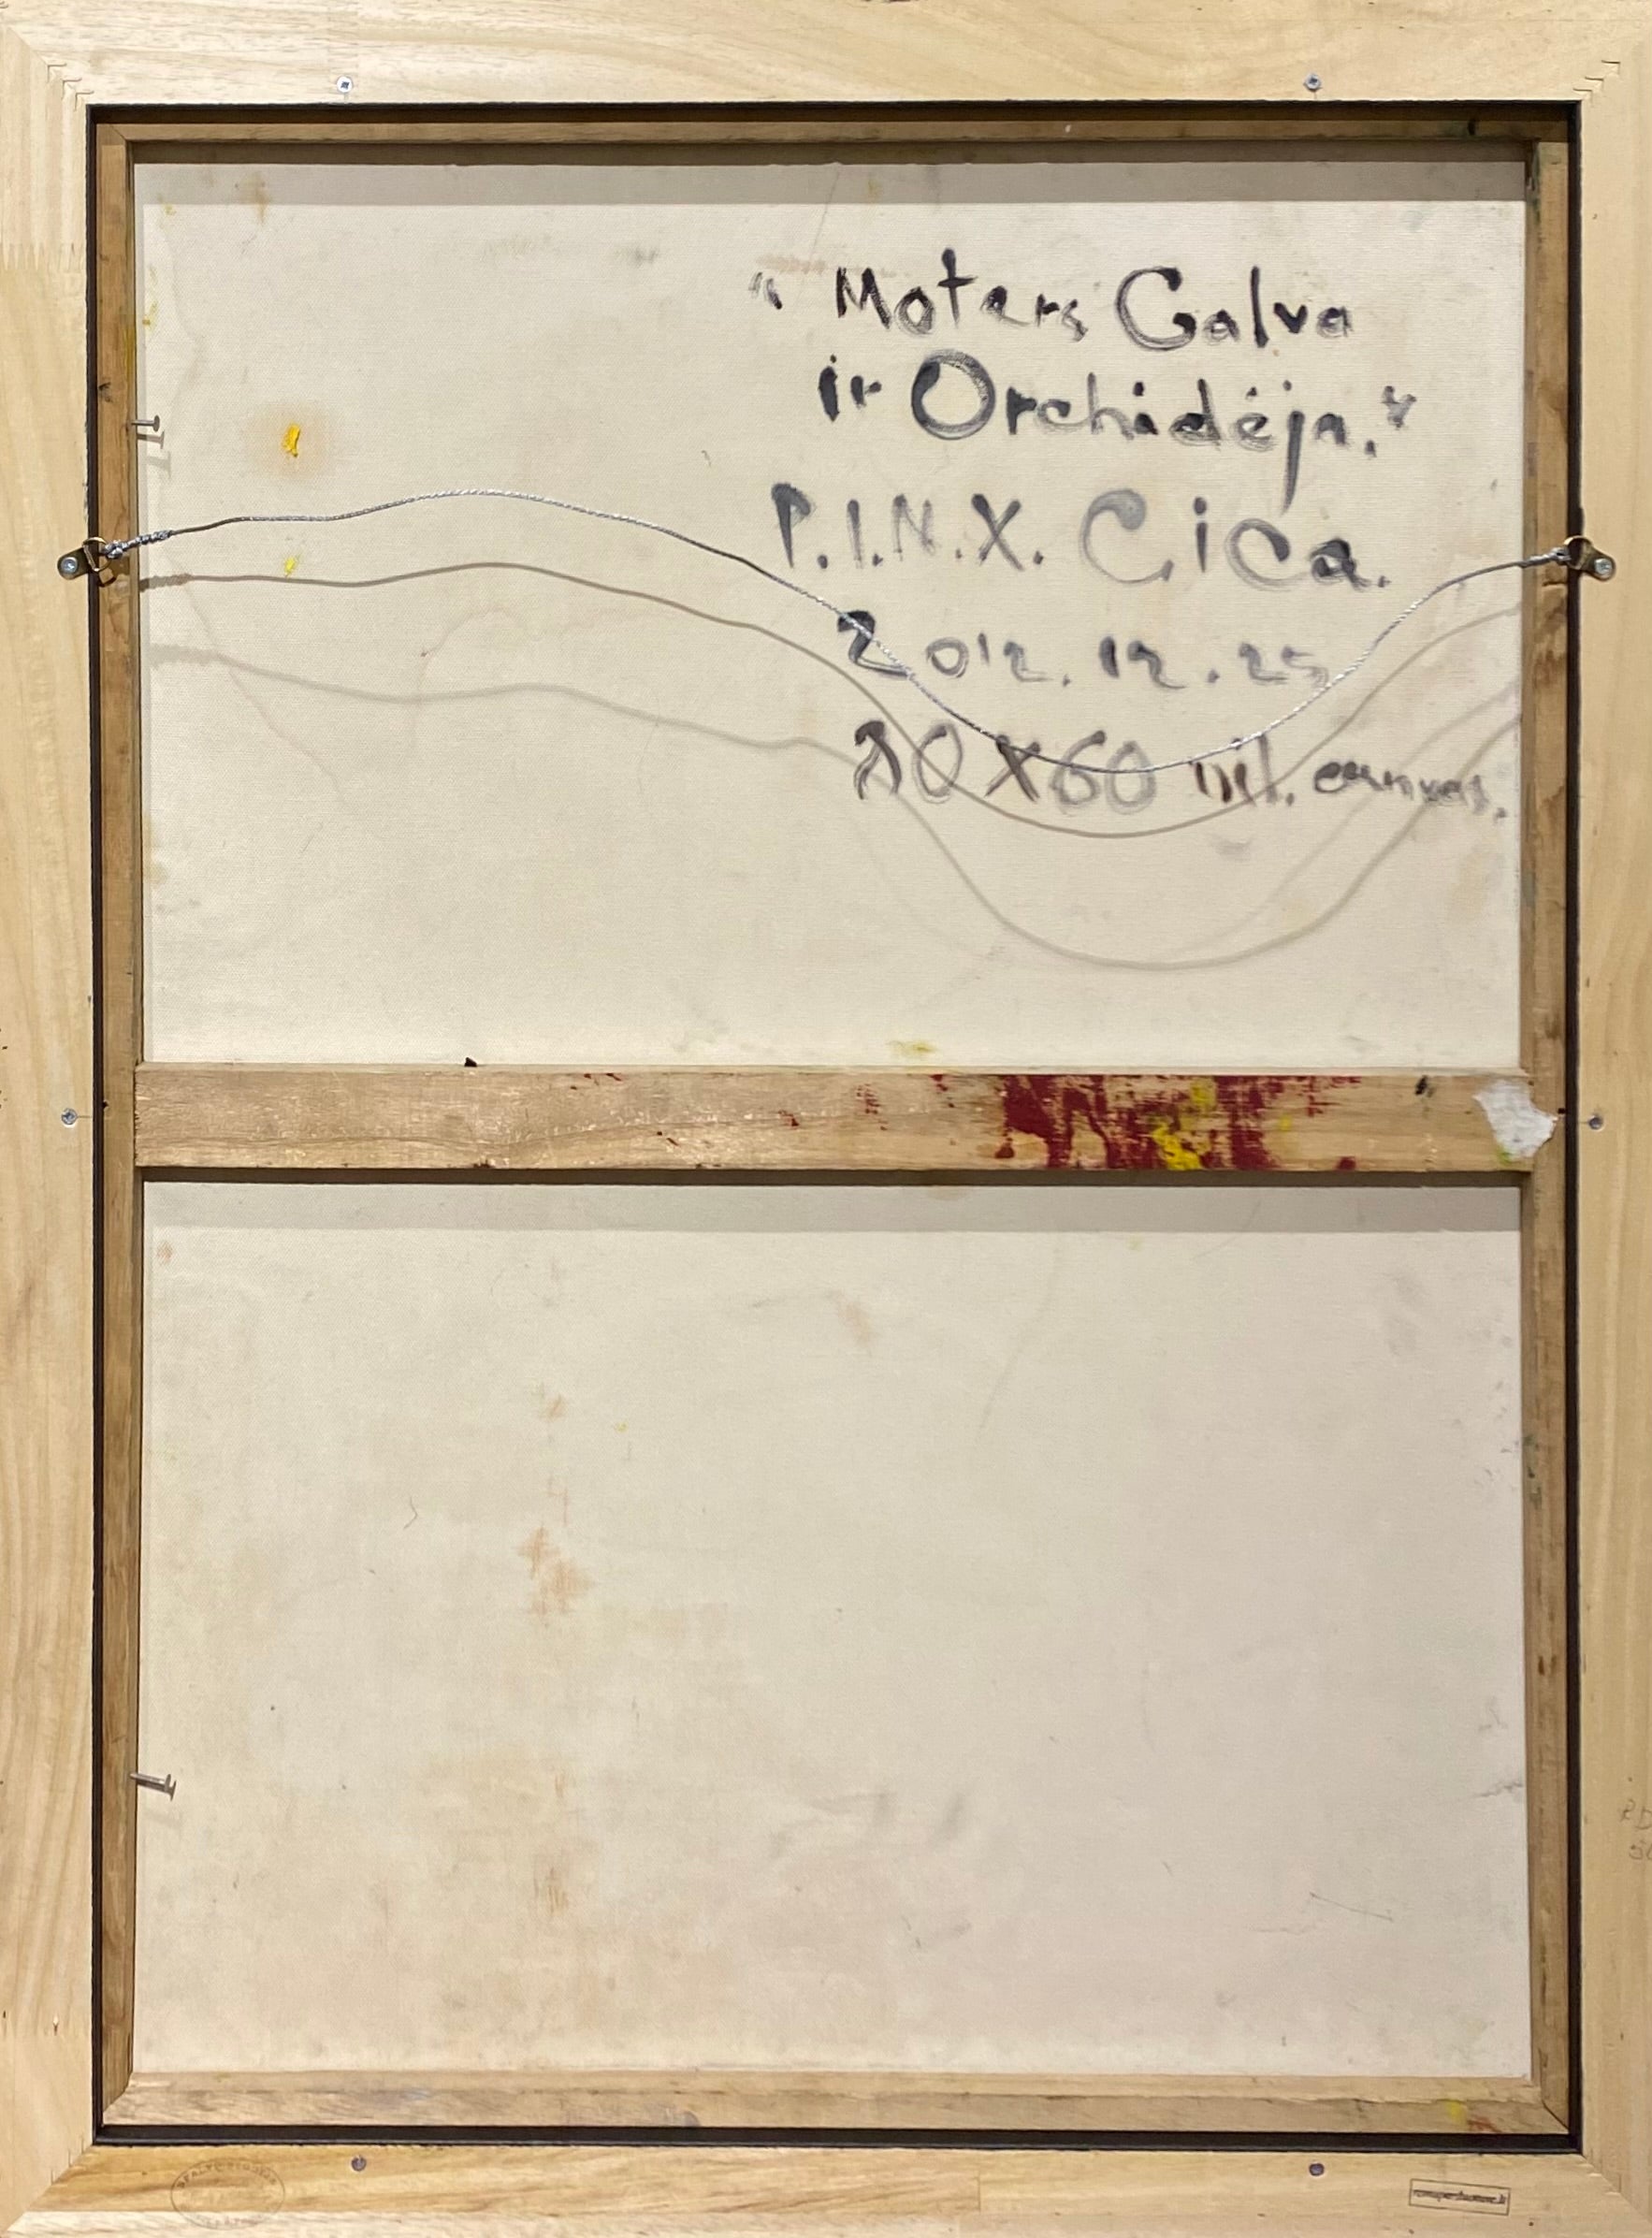 "Moters Galva
ir Orchidėja."
P.I.N.X. Cica.
2012.12.25
80X60 mil. canvas.